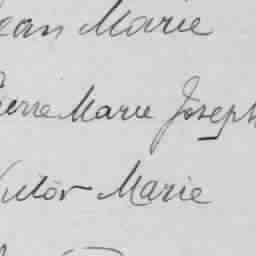 Jean Marie
Pierre Marie Joseph
Victor Marie